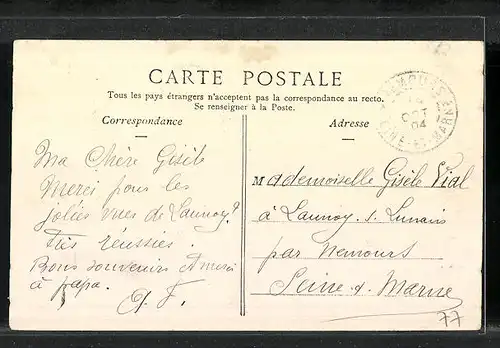 CARTE POSTALE
Tous les pays étrangers n'acceptent pas la correspondance au recto.
Se renseigner à la Poste.
Correspondance
Adresse
Ma Chère Gisèle
Merci pour les
jolies vues de Launoy
Très réussies.
Bons souvenirs
à papa.
Mademoiselle Gisèle Vial
à Launoy s. Lunain
par Nemours
Seine & Marne
NEMOURS
OCT
04
SEINE-ET-MARNE
77